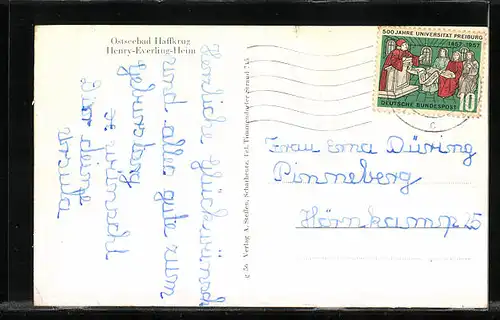 Ostseebad Haffkrug
Henry-Everling-Heim
Herzliche Glückwünsche
und alles gute zum
Geburtstag
wünscht
Dir deine
Ursula
Verlag A. Steffen, Scharbeutz, Tel. Timmendorfer Strand
500 JAHRE UNIVERSITÄT FREIBURG
1457-1957
DEUTSCHE BUNDESPOST
10
Frau Erna Düring
Pinneberg
Hörnkamp 25